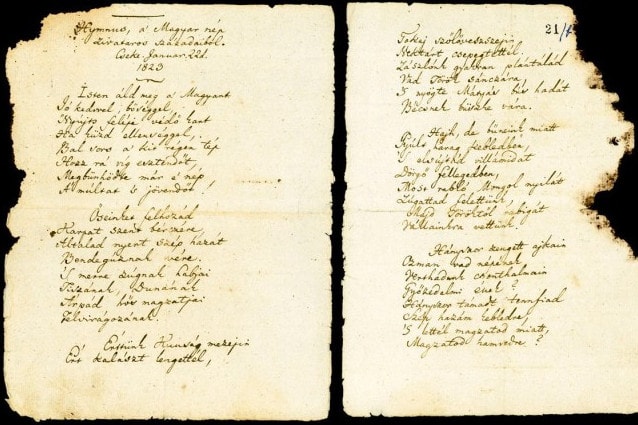 Hymnus, a' Magyar nép
zivataros századaiból.
Cseke, Januar. 22d.
1823
Isten áld meg a Magyart
Jó kedvvel, bőséggel,
Nyújts feléje védő kart
Ha küzd ellenséggel,
Bal sors a' kit régen tép
Hozz rá víg esztendőt,
Megbünhödte már e' nép
A' multat 's jövendőt!
Őseinket felhozád
Kárpát szent bérczére,
Általad nyert szép hazát
Bendegúznak vére.
'S merre zúgnak habjai
Tiszának, Dunának
Árpád hős magzatjai
Felvirágozának.
Értünk Kunság mezejin
Ért kalászt lengettél,
Tokaj szőlővesszejin
Nektárt csepegtettél.
Zászlónk gyakran plántálád
Vad Török sánczára,
'S nyögte Mátyás bús hadát
Bécsnek büszke vára.
21/
Hajh, de bűneink miatt
Gyúlt harag kebledben,
'S elsújtád villámidat
Dörgő fellegedben,
Most rabló Mongol nyilát
Zúgattad felettünk,
Majd Töröktől rabigát
Vállainkra vettünk.
Hányszor zengett ajkain
Ozman vad népének
Vert hadunk csonthalmain
Győzedelmi ének?
Hányszor támadt tenfiad
Szép hazám kebledre,
'S lettél magzatod miatt,
Magzatod hamvvedre?